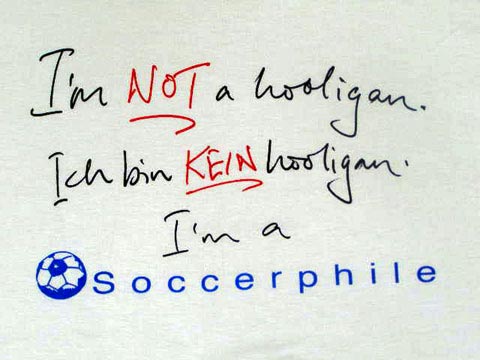 I'm NOT a hooligan.
Ich bin KEIN hooligan.
I'm a
Soccerphile